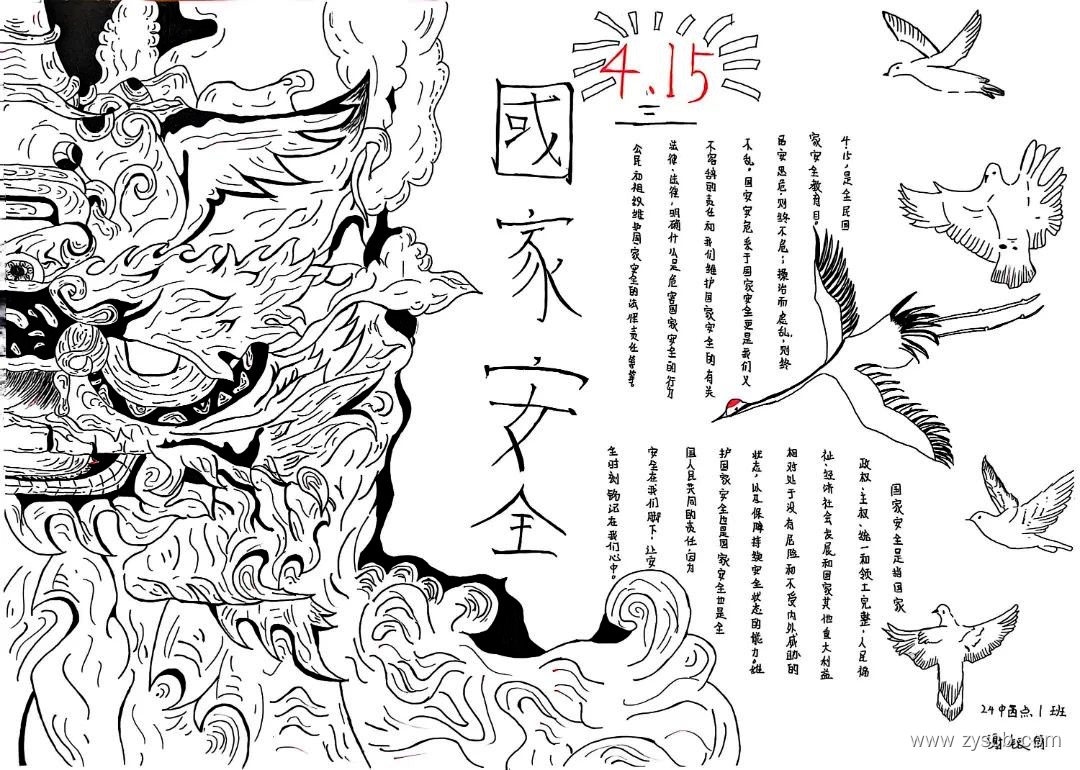 4.15
國家安全
4.15,是全民国
家安全教育日。
居安思危,则终不危;操治而虑乱,则终
不乱。国安安危系于国家安全更是我们义
不容辞的责任和我们维护国家安全的有关
法律、法律,明确什么是危害国家安全的行为
公民和组织维护国家安全的法律责任等等。
国家安全是指国家
政权、主权、统一和领土完整、人民福
祉、经济社会发展和国家其他重大利益
相对处于没有危险和不受内外威胁的
状态,以及保障持续安全状态的能力。维
护国家安全也是国家安全也是全
国人民共同的责任因为
安全在我们脚下,让安
全时刻铭记在我们心中。
24中西点、1班
谢